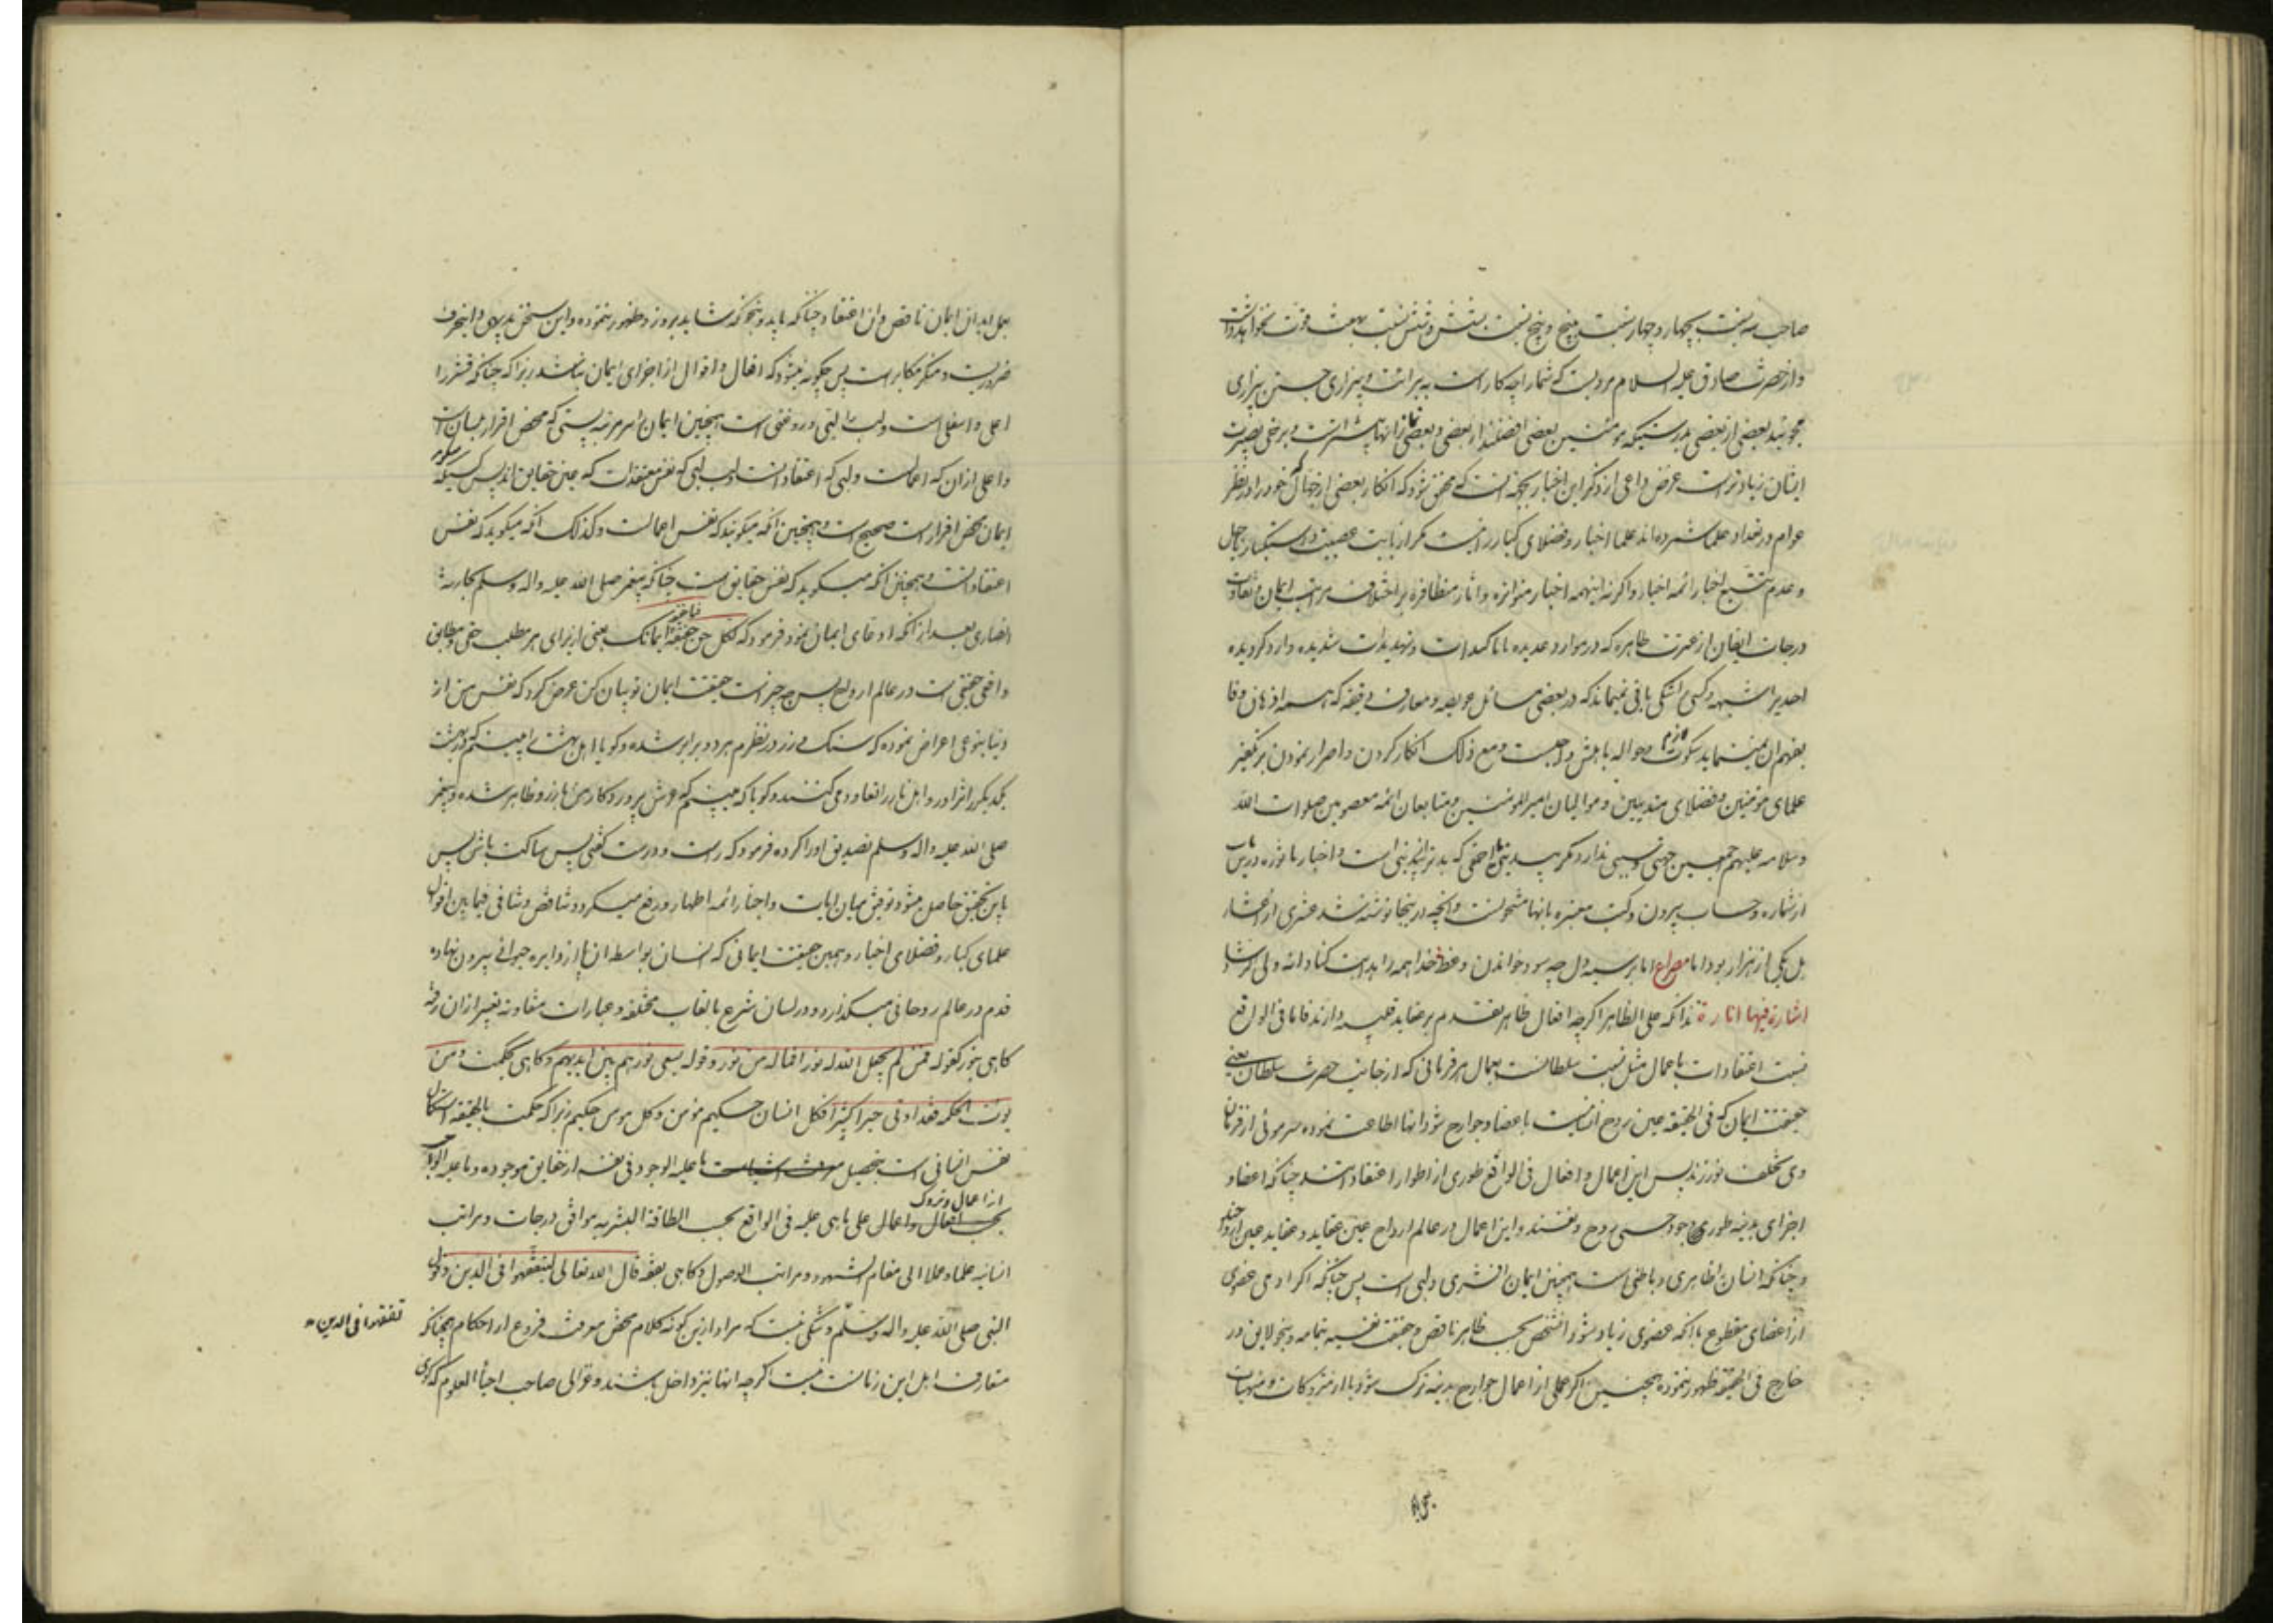 صاحب سه نسبت بچهار و چهار نسبت به پنج و پنج نسبت بشش و شش نسبت بهفت فوت نخواهد داشت
و از حضرت صادق علیه السلام مرویست که شما را چه کار است به برائت و بیزاری جستن بیزاری
میجویید بعضی از بعضی بدرستیکه مؤمنین بعضی افضلند از بعضی و بعضی نماز انها بیشتر است و برخی بصیرت
ایشان زیادتر است غرض داعی از ذکر این اخبار بجهة انست که محقق شود که انکار بعضی از جهال که خود را در نظر
عوام در تعداد علما شمرده اند علما اخیار و فضلای کبار را نیست مکر از بابت عصبیت و استکبار و جهل
و عدم تتبع اخبار ائمه اخیار و اکرنه اینهمه اخبار متواتره و اثار متظافره بر اختلاف مراتب ایمان و تفاوت
درجات ایقان از عترت طاهره که در موارد عدیده با تاکیدات و تهدیدات شدیده وارد کردیده
احدی را شبهه و کسی را شکی باقی نمیماند که در بعضی مسائل عویصه و معارف دقیقه که همه اذهان وفا
بفهم ان نمینماید سکوت لازم و حواله باهلش واجبست و مع ذلک انکار کردن و اصرار نمودن بر تکفیر
علمای مؤمنین و فضلای متدینین و موالیان امیر المومنین و متابعان ائمه معصومین صلوات الله
و سلامه علیهم اجمعین جهتی و سببی ندارد مکر
از شماره و حساب بیرون و کتب معتبره بانها مشحونست و انچه در اینجا نوشته شد عشری از اعشار
بل یکی از هزار بود اما مصراع اما بر سیه دل چه سود خواندن وعظ خدا همه را هدایت کناد انه ولی الرشاد
اشارة فیها انارة بدانکه علی الظاهر اکرچه افعال ظاهر تقدم بر عقاید قلبیه دارند فاما فی الواقع
نسبت اعتقادات باعمال مثل نسبت سلطانست بعمال هر فرمانی که از جانب حضرت سلطان یعنی
حقیقت ایمان که فی الحقیقه عین روح انسانیست باعضا و جوارح شود انها اطاعت نموده سر موئی از فرمان
وی تخلف نورزند پس این اعمال و افعال فی الواقع طوری از اطوار اعتقاداتند چنانکه اعضا و
اجزای بدنیه طوری وجود حسی روح و نفسند و این اعمال در عالم ارواح عین عقاید و عقاید عین
و چنانکه انسان را ظاهری و باطنی است همچنین ایمان را قشری و لبی است پس چنانکه اکر ادمی عضوی
از اعضای مقطوع یا انکه عضوی زیاد شود انشخص بحسب ظاهر ناقص و حقیقت نفسیه بتمامه و بنحو لایق در
خارج فی الحقیقه ظهور ننموده همچنین اکر عملی از اعمال جوارح بدنیه ترک شود یا از متروکات و منهیات
بعمل اید ان ایمان ناقص و ان اعتقاد چنانکه باید و بنحوی که شاید بروز و ظهور ننموده و این سخن بدیهی و اینحرف
ضروریست و منکر مکابر است پس چکونه میشود که افعال و اقوال از اجزای ایمان نباشند زیرا که چنانکه قشر را
اعلی و اسفلی است و لب را لبی و روغنی است همچنین ایمان را مرتبه پستی که محض اقرار بلسان است
و اعلی از ان که اعمالست و لبی که اعتقاداتست و لب لبی که نفس معتقدات که عین حقایق اند پس کسیکه میکوید
ایمان محض اقرار است صحیح است و همچنین انکه میکویند که نفس اعمالست و کذلک انکه میکوید که نفس
اعتقاداتست و همچنین انکه میکوید که نفس حقایق است چنانکه پیغمبر صلی الله علیه واله وسلم بحارثه
انصاری بعد از انکه ادعای ایمان نمود فرمود که لکل حق حقیقة فما حقیقة ایمانک یعنی از برای هر مطلب حقی و مطابق
واقعی حقیقتی است در عالم ارواح پس چه چیز است حقیقت ایمان تو بیان کن عرض کرد که نفس من از
دنیا بنوعی اعراض نموده که سنک و زر در نظرم هر دو برابر شده و کویا اهل بهشت را میبینم که در بهشت
یکدیکر را تزاور و اهل نار را تعاوی می کنند و کویا که میبینم که عرش پروردکار من بارز و ظاهر شده و پیغمبر
صلی الله علیه واله وسلم تصدیق او را کرده فرمود که راست و درست کفتی پس ساکت باش پس
باین تحقیق حاصل میشود توفیق میان ایات و اخبار ائمه اطهار و رفع میکردد تناقض و تنافی فیما بین اقوال
علمای کبار و فضلای اخیار و همین حقیقت ایمانی که انسان بواسطه ان پا از دایره حیوانی بیرون نهاده
قدم در عالم روحانی میکذارد و در لسان شرع بالقاب مختلفه و عبارات متفاوته تعبیر از ان رفته
کاهی بنور کقوله فمن لم یجعل الله له نورا فماله من نور و قوله یسعی نورهم بین ایدیهم و کاهی بحکمت و من
یوت الحکمة فقد اوتی خیرا کثیرا فکل انسان حکیم مؤمن و کل مومن حکیم زیرا که حکمت بالحقیقه استکمال
نفس انسانی است بتحصیل ما علیه الوجود فی نفسه از حقایق موجوده و ما علیه الواجب
از اعمال و تروک
بحسب افعال و اعمال علی ما هی علیه فی الواقع بحسب الطاقة البشریه موافق درجات و مراتب
انسانیه علما و عملا الی مقام الشهود و مراتب الوصول و کاهی بفقه قال الله تعالی لیتفقهوا فی الدین و قول
النبی صلی الله علیه واله وسلم و شکی نیست که مراد از این کونه کلام محض معرفت فروع از احکام همچنانکه
تفقهوا فی الدین
متعارف اهل این زمانست نیست اکرچه انها نیز داخل باشند و غزالی صاحب احیاء العلوم که